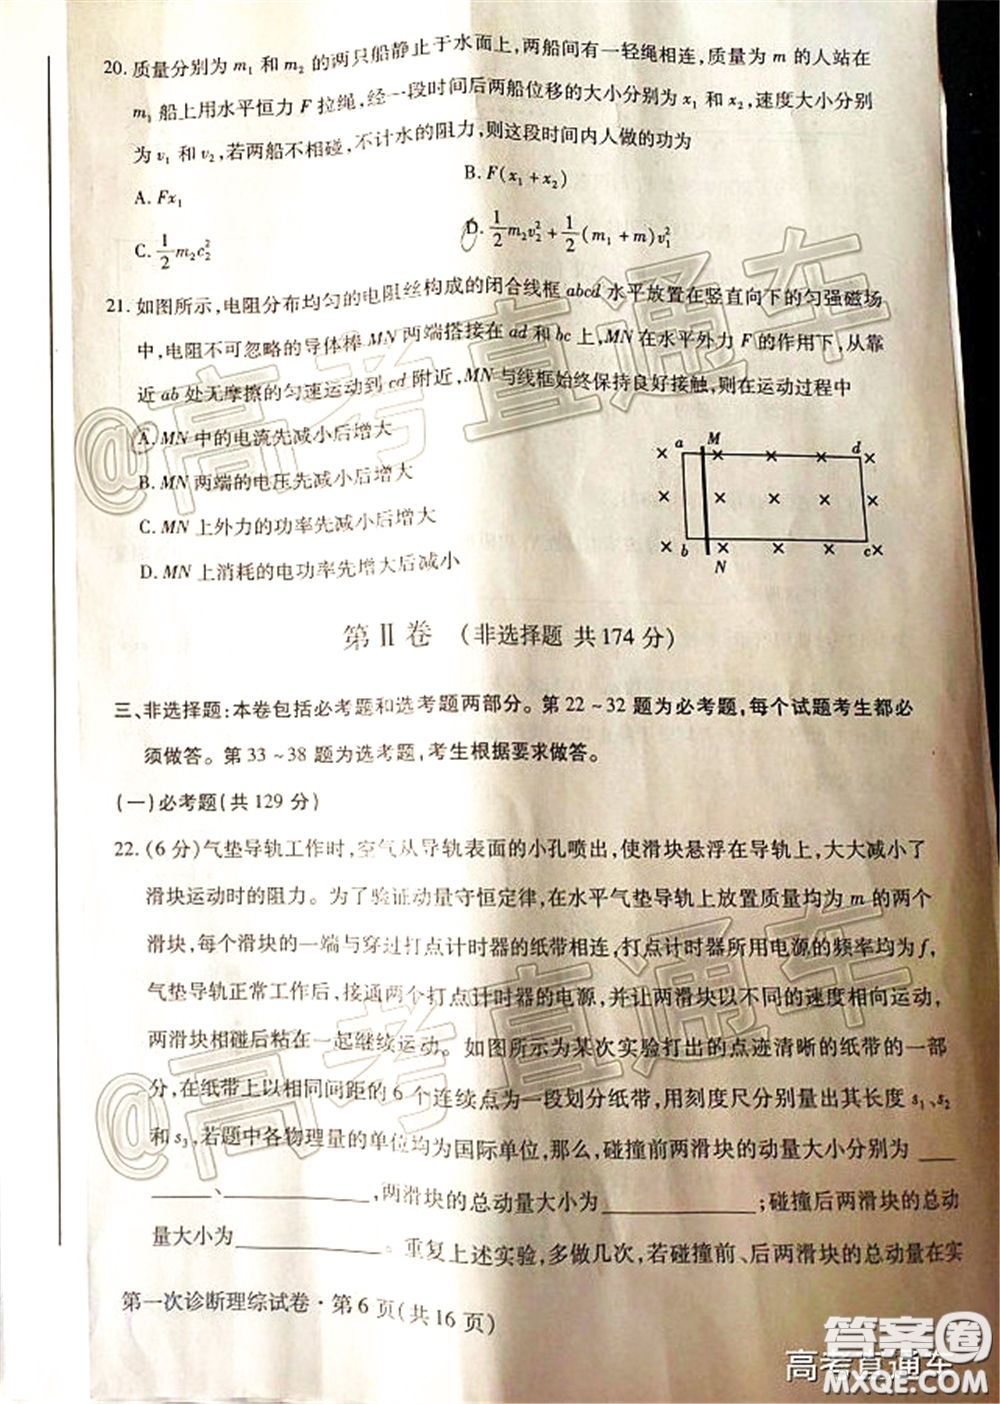 20. 质量分别为 m₁ 和 m₂ 的两只船静止于水面上，两船间有一轻绳相连，质量为 m 的人站在
m₁ 船上用水平恒力 F 拉绳，经一段时间后两船位移的大小分别为 x₁ 和 x₂，速度大小分别
为 v₁ 和 v₂，若两船不相碰，不计水的阻力，则这段时间内人做的功为
A. Fx₁
B. F(x₁+x₂)
C. 1/2 m₂c₂²
D. 1/2 m₂v₂² + 1/2 (m₁+m)v₁²
21. 如图所示，电阻分布均匀的电阻丝构成的闭合线框 abcd 水平放置在竖直向下的匀强磁场
中，电阻不可忽略的导体棒 MN 两端搭接在 ad 和 bc 上，MN 在水平外力 F 的作用下，从靠
近 ab 处无摩擦的匀速运动到 cd 附近，MN 与线框始终保持良好接触，则在运动过程中
A. MN 中的电流先减小后增大
B. MN 两端的电压先减小后增大
C. MN 上外力的功率先减小后增大
D. MN 上消耗的电功率先增大后减小
a M d
b N c
第 II 卷 (非选择题 共 174 分)
三、非选择题：本卷包括必考题和选考题两部分。第 22~32 题为必考题，每个试题考生都必
须做答。第 33~38 题为选考题，考生根据要求做答。
(一)必考题(共 129 分)
22. (6 分)气垫导轨工作时，空气从导轨表面的小孔喷出，使滑块悬浮在导轨上，大大减小了
滑块运动时的阻力。为了验证动量守恒定律，在水平气垫导轨上放置质量均为 m 的两个
滑块，每个滑块的一端与穿过打点计时器的纸带相连，打点计时器所用电源的频率均为 f，
气垫导轨正常工作后，接通两个打点计时器的电源，并让两滑块以不同的速度相向运动，
两滑块相碰后粘在一起继续运动。如图所示为某次实验打出的点迹清晰的纸带的一部
分，在纸带上以相同间距的 6 个连续点为一段划分纸带，用刻度尺分别量出其长度 s₁、s₂
和 s₃，若题中各物理量的单位均为国际单位，那么，碰撞前两滑块的动量大小分别为 ___
______、____________，两滑块的总动量大小为____________；碰撞后两滑块的总动
量大小为____________。重复上述实验，多做几次，若碰撞前、后两滑块的总动量在实
第一次诊断理综试卷·第 6 页(共 16 页)
@高考直通车
@高考直通车
高考直通车
答案圈
MXQE.COM